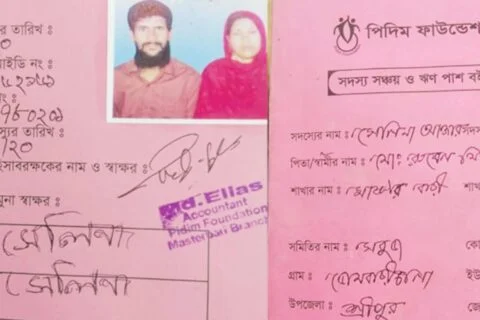 র তারিখ :
আইডি নং :
নং :
স্যর তারিখ :
/২০
হিসাবরক্ষকের নাম ও স্বাক্ষর :
Md. Elias
Accountant
Pidim Foundation
Masterbari Branch
নমুনা স্বাক্ষর :
সেলিনা
সেলিনা
পিদিম ফাউন্ডেশ
সদস্য সঞ্চয় ও ঋণ পাশ বই
সদস্যের নাম : সেলিনা আক্তার সদস
পিতা/স্বামীর নাম : মো: রুবেল মি
শাখার নাম : মাষ্টার বাড়ী শাখ
সমিতির নাম : সবুজ কো
গ্রাম : ইউ
উপজেলা : শ্রীপুর জে